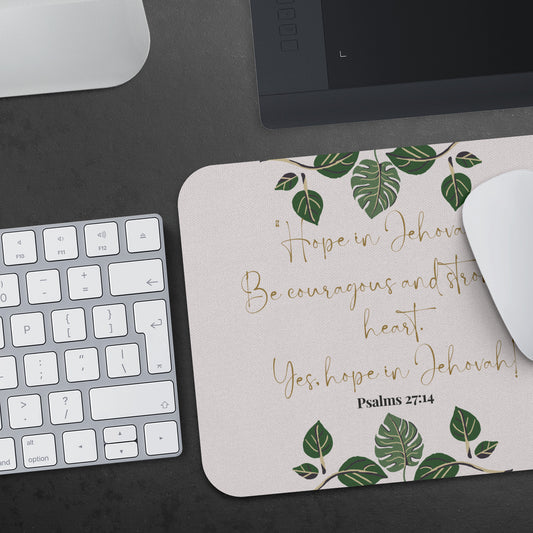 F10 F11 F12
) 0 _ - + =
P { [ } ]
: ; " ' | \
> . ? /
alt
option
"Hope in Jehova
Be couragous and stro
heart.
Yes, hope in Jehovah!
Psalms 27:14